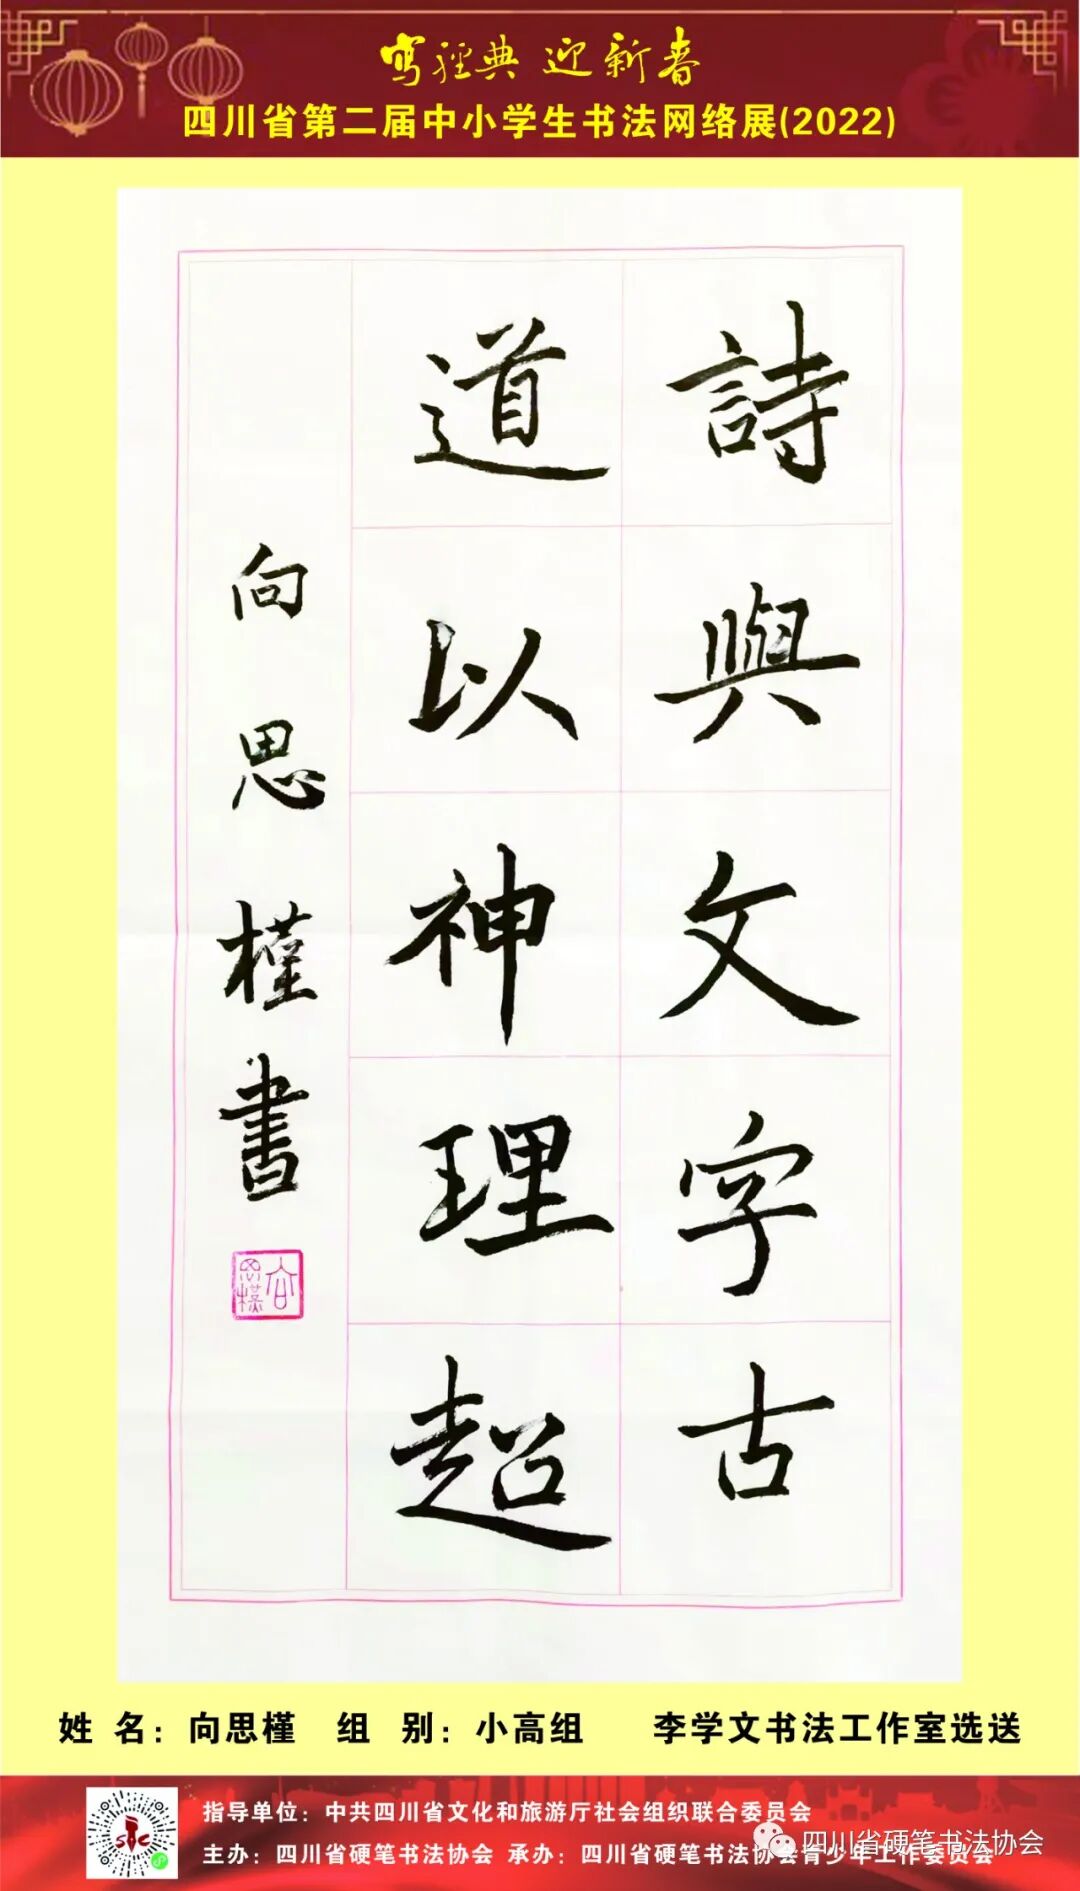 写经典 迎新春
四川省第二届中小学生书法网络展(2022)
詩與文字古
道以神理超
向思槿書
向思槿
姓 名：向思槿 组 别：小高组 李学文书法工作室选送
指导单位：中共四川省文化和旅游厅社会组织联合委员会
主办：四川省硬笔书法协会 承办：四川省硬笔书法协会青少年工作委员会
四川省硬笔书法协会